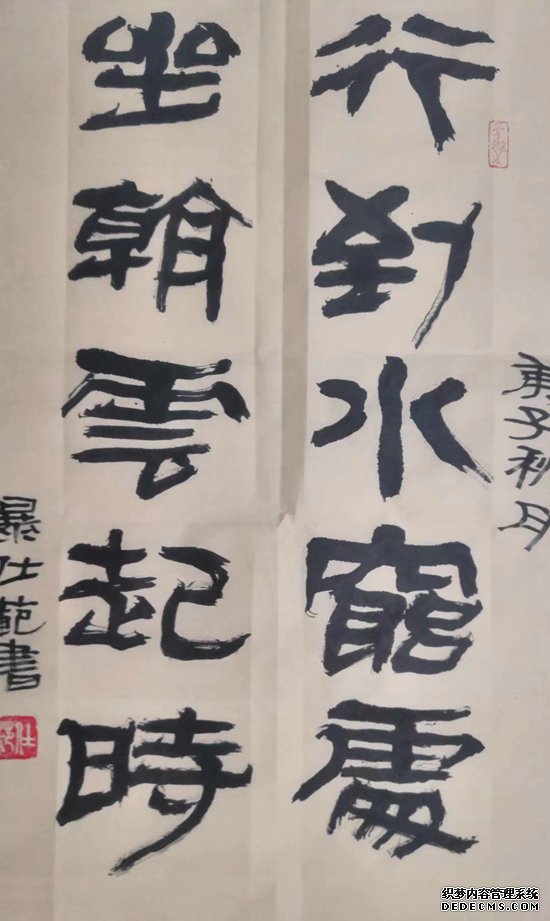 庚子秋月
行到水窮處
坐看雲起時
暴仕範書
织梦内容管理系统
DEDECMS.COM